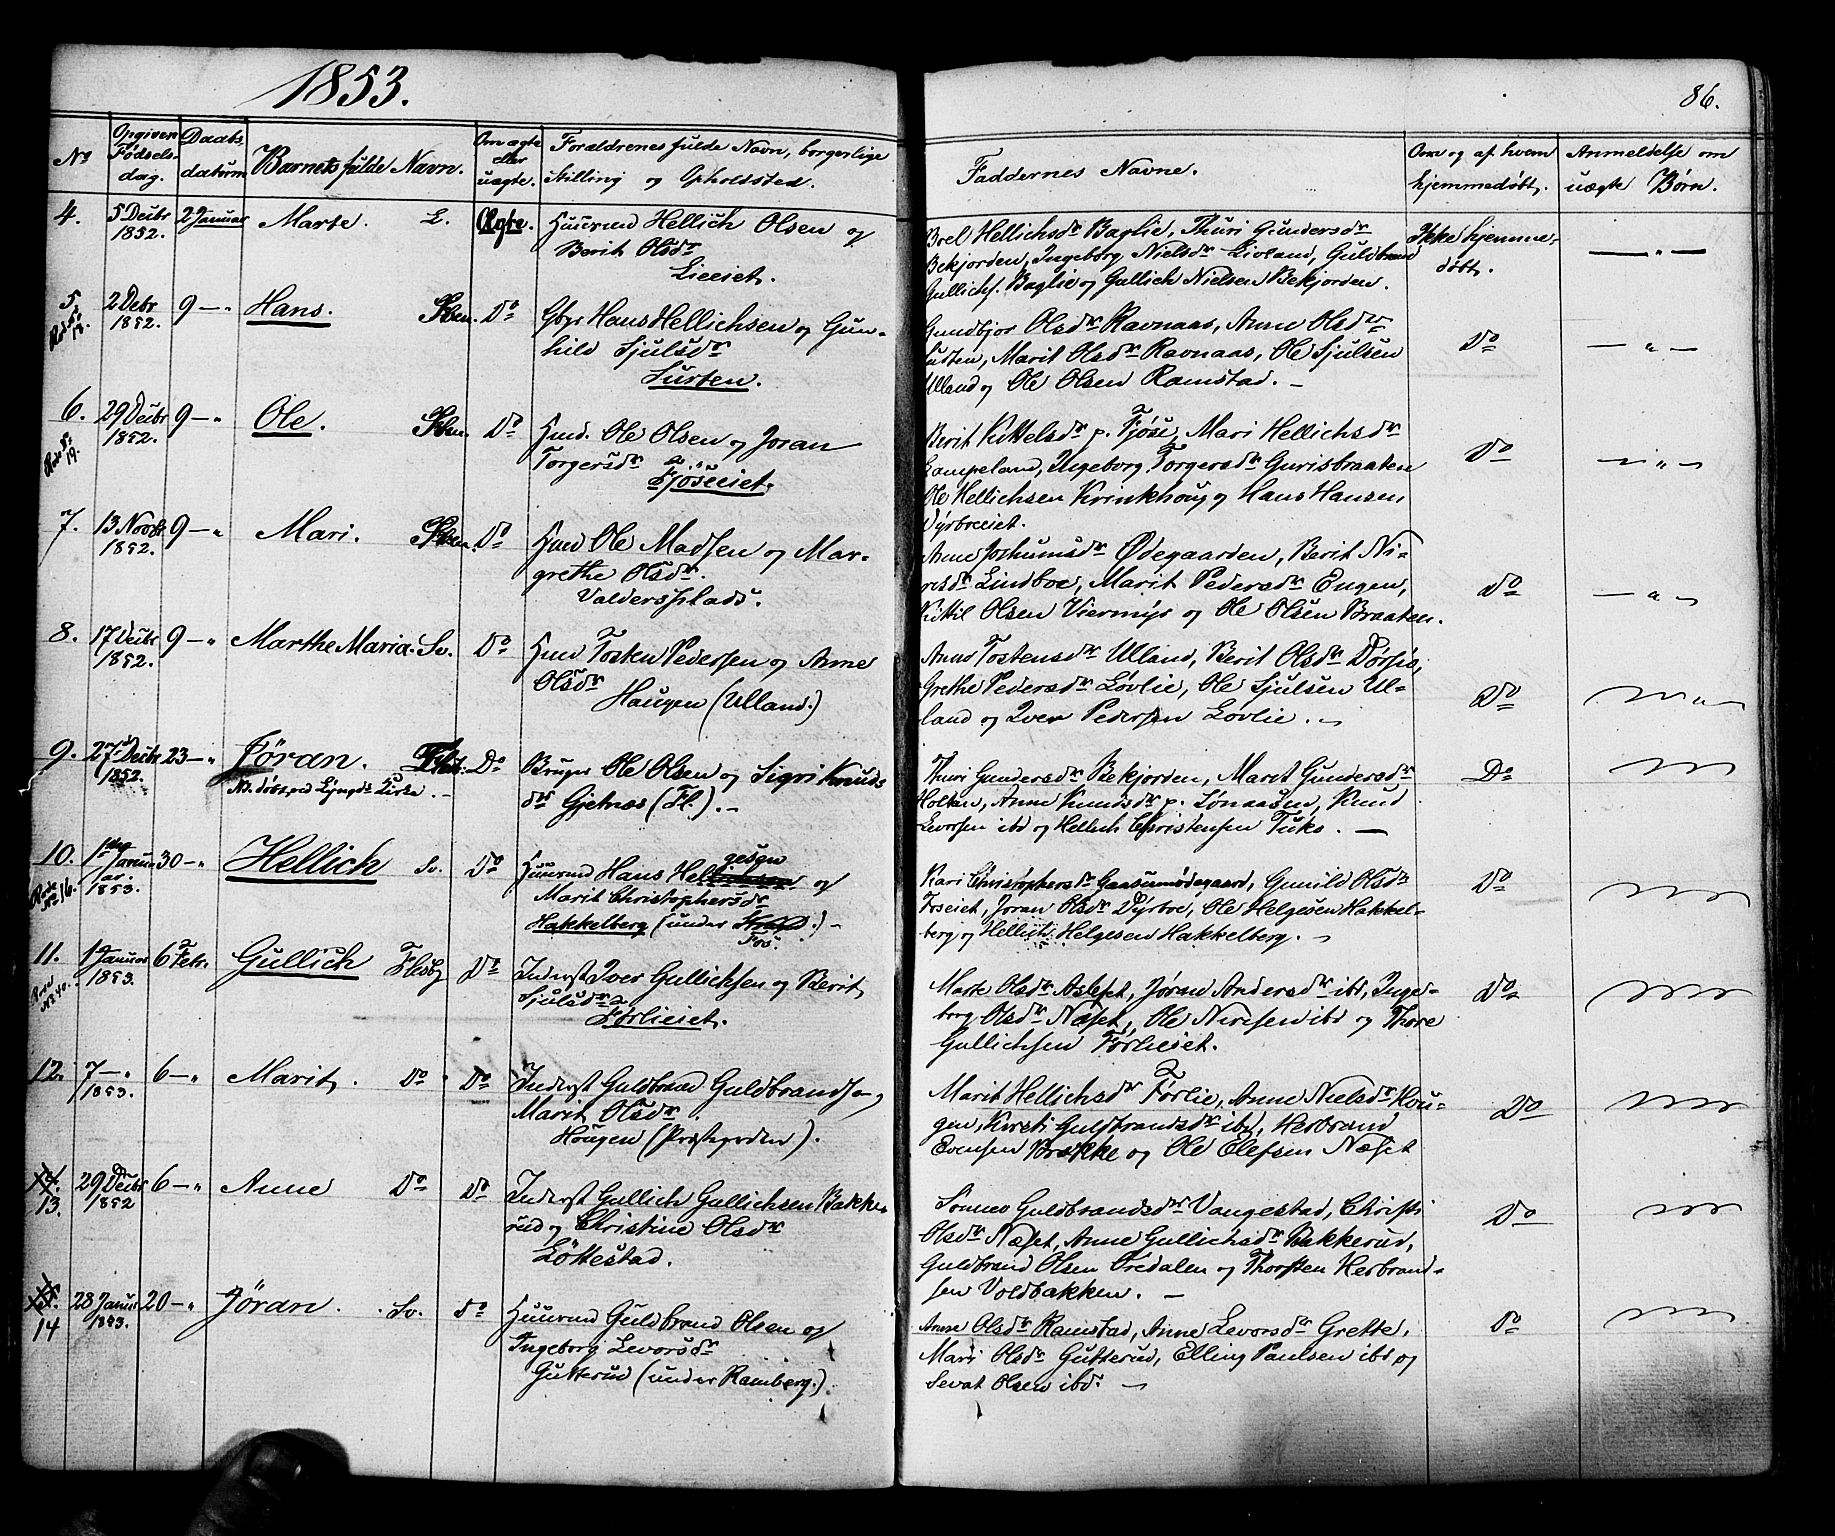 1853.
86.
No
Opgiven Fødsels-dag.
Daabs datum
Barnets fulde Navn.
Om ægte eller uægte.
Forældrenes fulde Navn, borgerlige Stilling og Opholdsted.
Faddernes Navne.
Om og af hvem hjemmedøbt.
Anmeldelse om uægte Børn.
4. 5 Decbr 1852. 2 Januar Marte. L. Ægte.
Huusmd Hellich Olsen og
Berit Olsdr
Lieeiet.
Hellichsdr Baglie, Thuri Gundersdr
Bekjorden, Ingeborg Nielsdr Livland, Guldbrand
Gullichs. Baglie og Gullich Nielsen Bekjorden.
Ikke hjemme-
døbt.
5. 2 Debr 1852. 9 — " Hans. Do
Gbr Hans Hellichsen og Gun-
hild Sjulsdr
Surten.
Gundbjor Olsdr Ravnaas, Anne Olsdr
Surten, Marit Olsdr Ravnaas, Ole Sjulsen
Ulland og Ole Olsen Ramstad. —
Do
6. 29 Decbr 1852. 9 — " Ole. Do
Hmd. Ole Olsen og Joran
Torgersdr
Fjöseeiet.
Berit Kittelsdr p. Fjöse, Mari Hellichsdr
Lampeland, Ingeborg Torgersdr Gurisbraaten
Ole Hellichsen Krinkhoug og Hans Hansen
Dyrboeeiet.
Do
7. 13 Novbr 1852. 9 — " Mari. Do
Hmd Ole Madsen og Mar-
grethe Olsdr.
Valdersplads.
Anne Jochumsdr Ødegaarden, Berit Ni-
risdr Lindboe, Marit Pedersdr Engen,
Kittil Olsen Viermyr og Ole Olsen Braaten.
Do
8. 17 Decbr 1852. 9 — " Marthe Maria. Sv. Do
Hmd Tosten Pedersen og Anne
Olsdr
Haugen (Ulland.)
Anne Tostensdr Ulland, Berit Olsdr
Grethe Pedersdr Løvlie, Ole Sjulsen Ul-
land og Iver Pedersen Løvlie. —
Do
9. 27 Decbr 1852. 23 — " Jøran. Do
Nb. døbt ved Lyngdals Kirke. —
Bruger Ole Olsen og Sigri Knuds
dr Gjelnæs (Fl.). —
Thuri Gundersdr Bekjorden, Maret Gundersdr
Holtan, Anne Knudsdr p. Lønaasen, Knud
Levorsen ibd og Hellich Christensen Tuko. —
Do
10. 1 Januar 1853. 30 — " Hellich Sv. Do
Huusmd Hans Helgesen og
Marit Christophersdr
Hakkelberg (under Fos.) —
Kari Christophersdr Gaasumødegaard, Gunild Olsdr
Foseiet, Joran Olsdr Dyrboe, Ole Helgesen Hakkel-
berg og Hellich Helgesen Hakkelberg. —
Do
11. 1 Januar 1853. 6 Febr. Gullich Flesb Do
Inderst Iver Gullichsen og Berit
Sjulsdr
Førlieiet.
Marte Olsdr Aslefet, Jøran Andersdr ibd, Inge-
borg Olsdr Næset, Ole Nirisen ibd og Thore
Gullichsen Førlieiet.
Do
12. 7 — " 1853. 6 — " Marit. Do Do
Inderst Guldbrand Guldbrandsen og
Marit Olsdr
Hougen (Præstegorden).
Marit Hellichsdr Førlie, Anne Nielsdr Hou-
gen, Kirsti Guldbrandsdr ibd, Herbrand
Evensen Brække og Ole Elefsen Næset
Do
13. 29 Decbr 1852 6 — " Anne Do Do
Inderst Gullich Gullichsen Bakke-
rud og Christine Olsdr
Löttestad.
Guldbrandsdr Vangestad, Christi
Olsdr Næset, Anne Gullichsdr Bakkerud,
Guldbrand Olsen Vredalen og Thorsten Herbrand-
sen Voldbakken. —
Do
14 28 Januar 1853. 20 — " Jöran. Sv. Do
Huusmd Guldbrand Olsen og
Ingeborg Levorsdr
Gutterud (under Ramberg.)
Anne Olsdr Ramstad, Anne Levorsdr Grette,
Mari Olsdr Gutterud, Elling Paulsen ibd og
Sevat Olsen ibd. —
Do